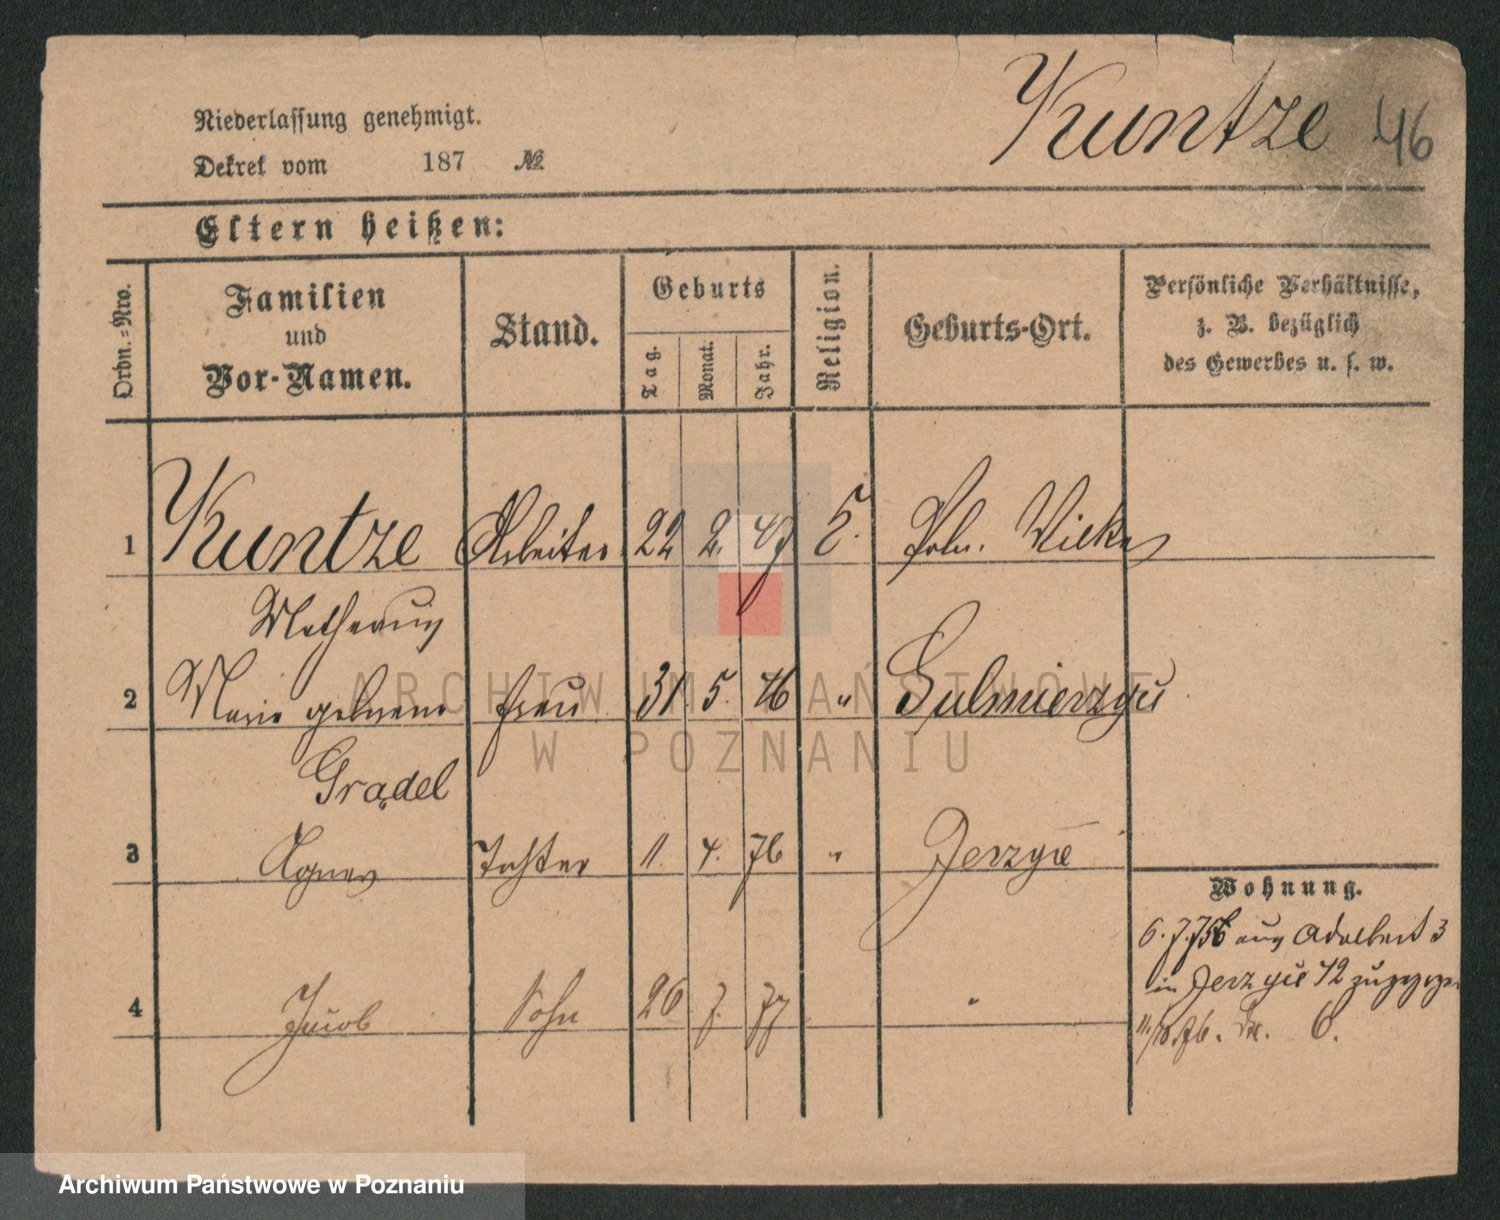 Kuntze 46
Niederlassung genehmigt.
Dekret vom 187 №
Eltern heißen:
Ordn.-Nro.
Familien
und
Vor-Namen.
Stand.
Geburts
Tag.
Monat.
Jahr.
Religion.
Geburts-Ort.
Persönliche Verhältnisse,
z. B. bezüglich
des Gewerbes u. s. w.
1 Kuntze Arbeiter 22 2. 47 E. Poln. Wilke
2 Marie geborene Frau 31 5. 46 "
Grądel
3 Agnes Tochter 11. 4. 76 " Jerzyce
Wohnung.
aus Adalbert 3
in Jerzyce 12
4 Jacob Sohn 26 7. 77 "
6.
ARCHIWUM PAŃSTWOWE
W POZNANIU
Archiwum Państwowe w Poznaniu